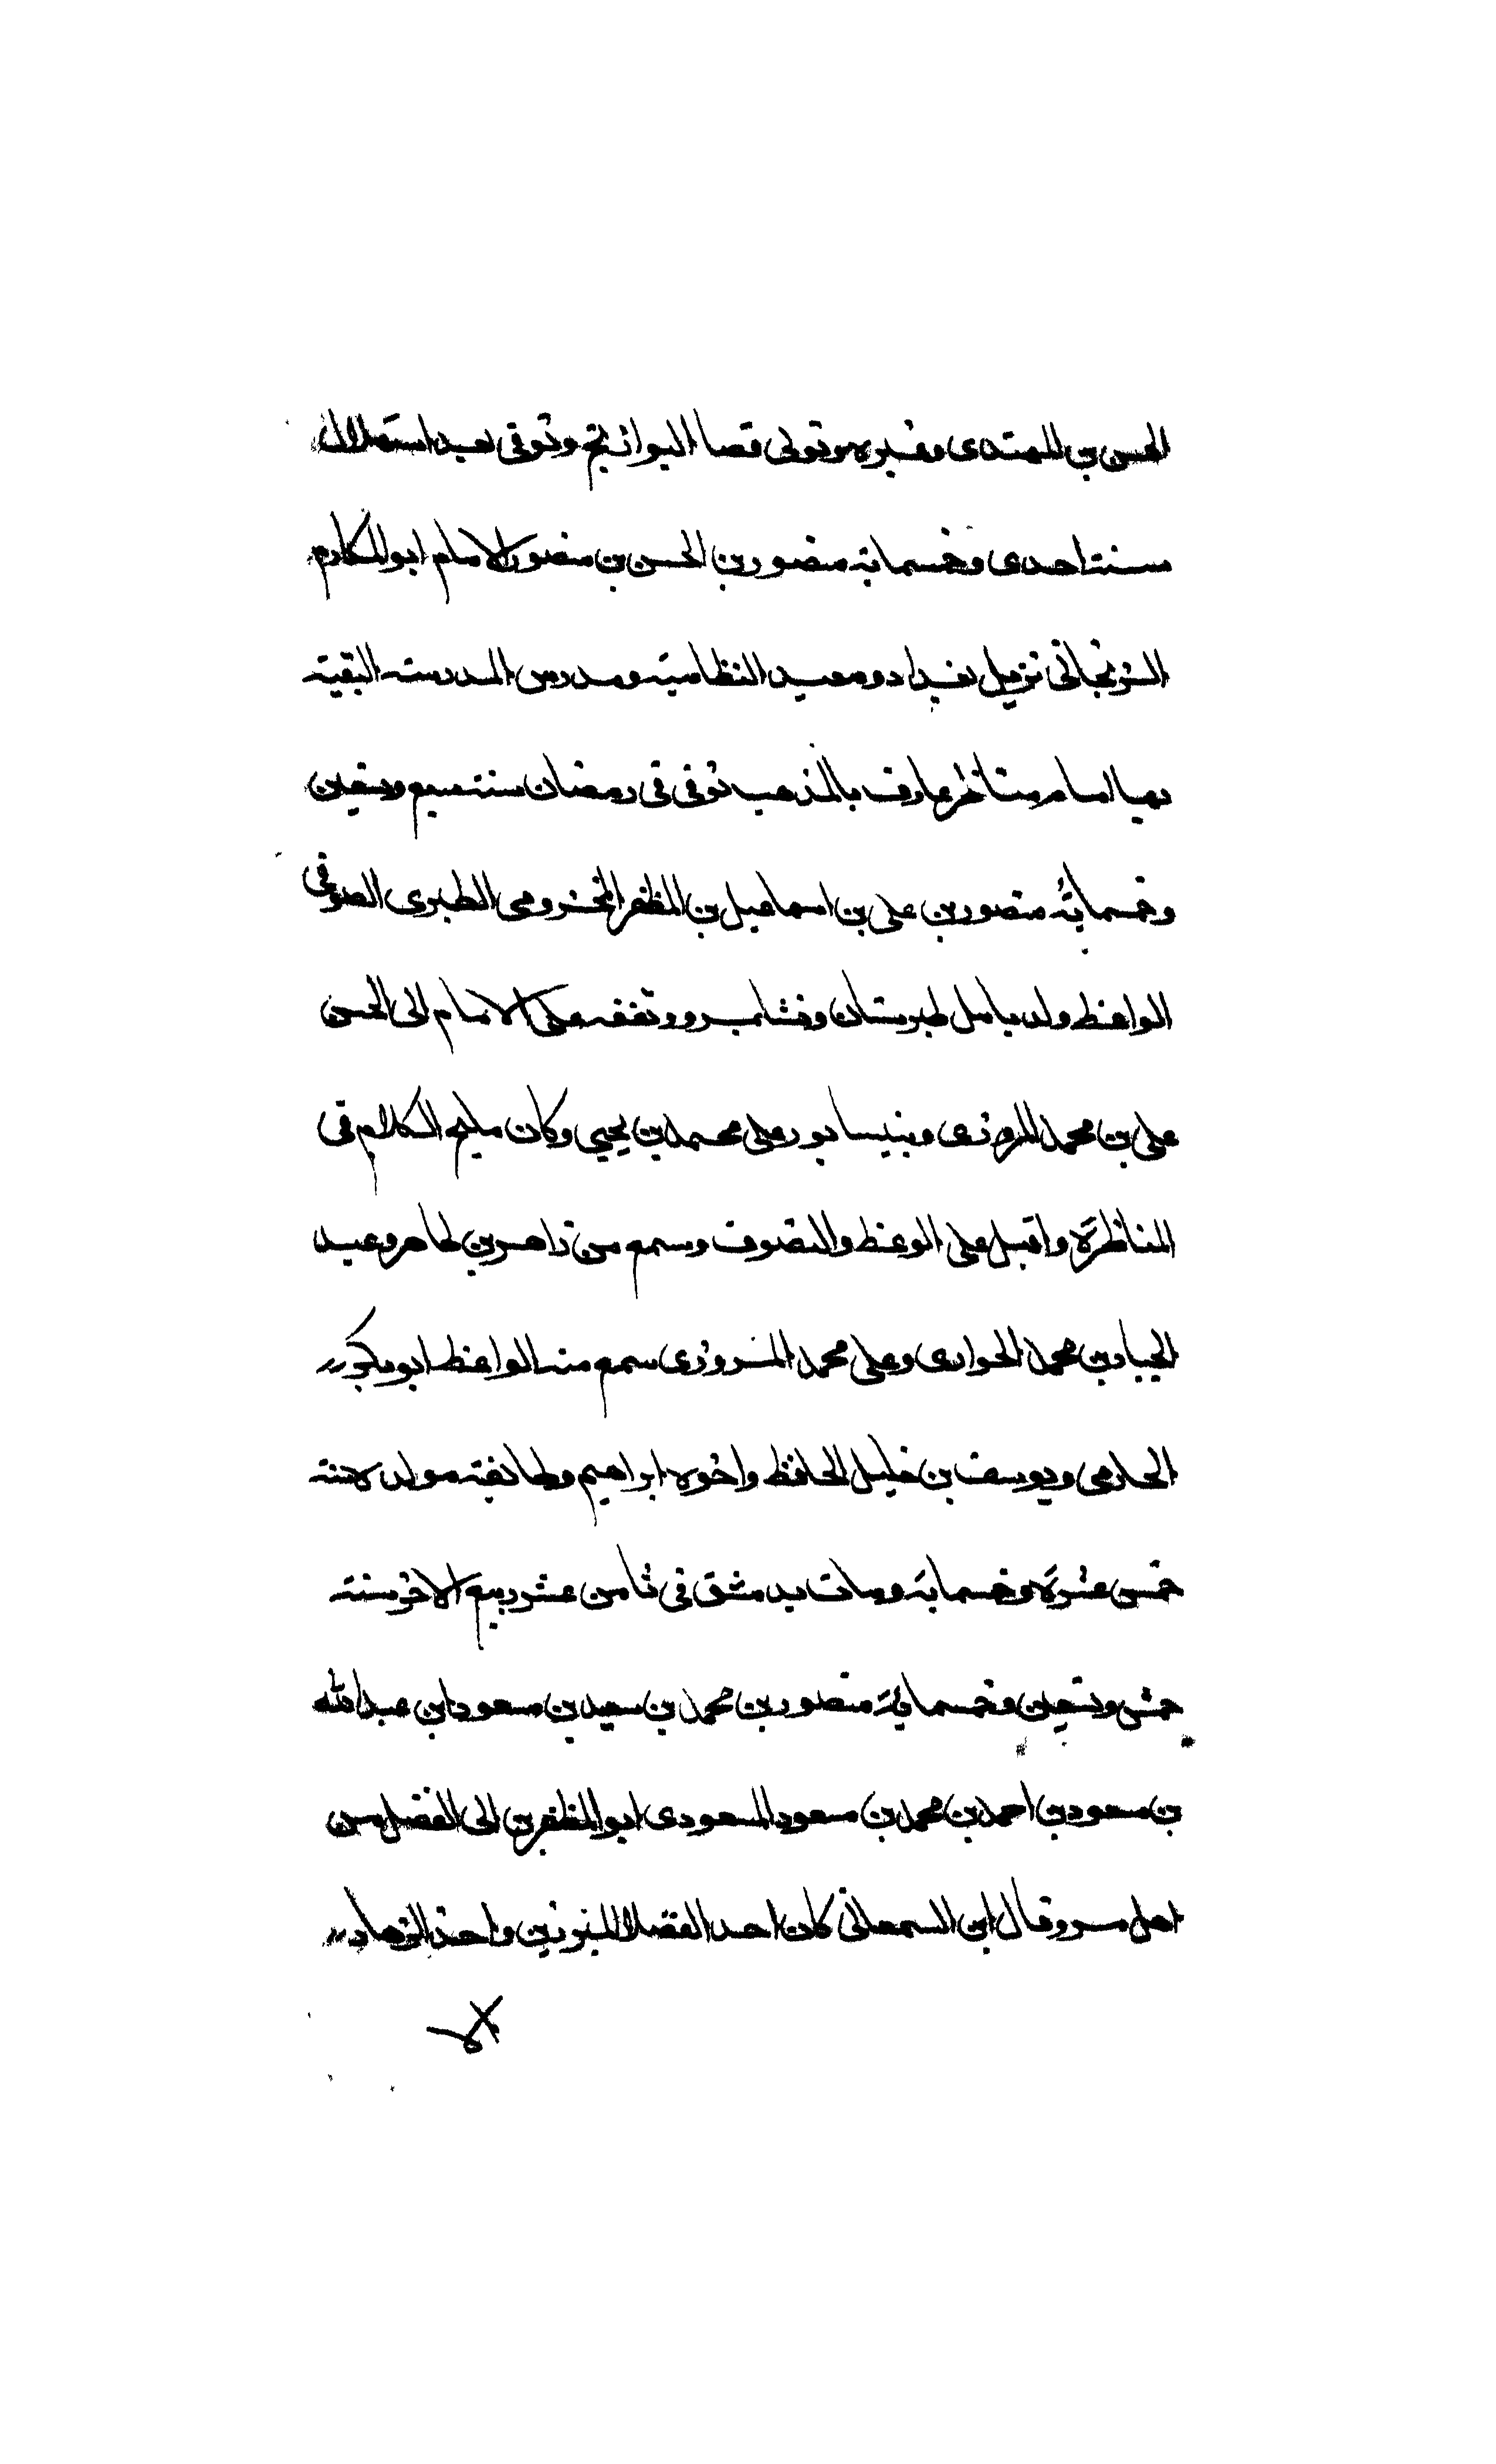 الحسن بن المهتدى وغيرهم وتولى قضا البوازيج وتوفى بعد استهلال
سنة احدى وخمسمائة منصور بن الحسن بن منصور الامام ابو المكارم
الزنجانى نزيل بغداد ومعيد النظامية ومدرس المدرسة الثقتية
بها امام مناظر عارف بالمذهب توفى فى رمضان سنة سبع وتسعين
وخمسمائة منصور بن على بن اسماعيل بن المظفر المخزومى الطبرى الصوفى
الواعظ ولد بامل طبرستان ونشا بمرو وتفقه على الامام ابى الحسن
على بن محمد المروزى وبنيسابور على محمد بن يحيى وكان مليح الكلام فى
المناظرة واقبل على الوعظ والتصوف وسمع من زاهر بن طاهر وعبد
الجبار بن محمد الخوارى وعلى محمد المروزى سمع منه الواعظ ابو بكر
الحازمى ويوسف بن خليل الحافظ واخوه ابراهيم وطائفة مولده سنة
خمس عشرة وخمسمائة ومات بدمشق فى ثامن عشر ربيع الاخر سنة
خمس وتسعين وخمسمائة منصور بن محمد بن سعيد بن مسعود ابن عبد الله
بن مسعود بن احمد بن محمد بن مسعود المسعودى ابو المظفر بن ابى الفضل من
اهل مرو وقال ابن السمعانى كان احد الفضلا المبرزين واحد الزهاد